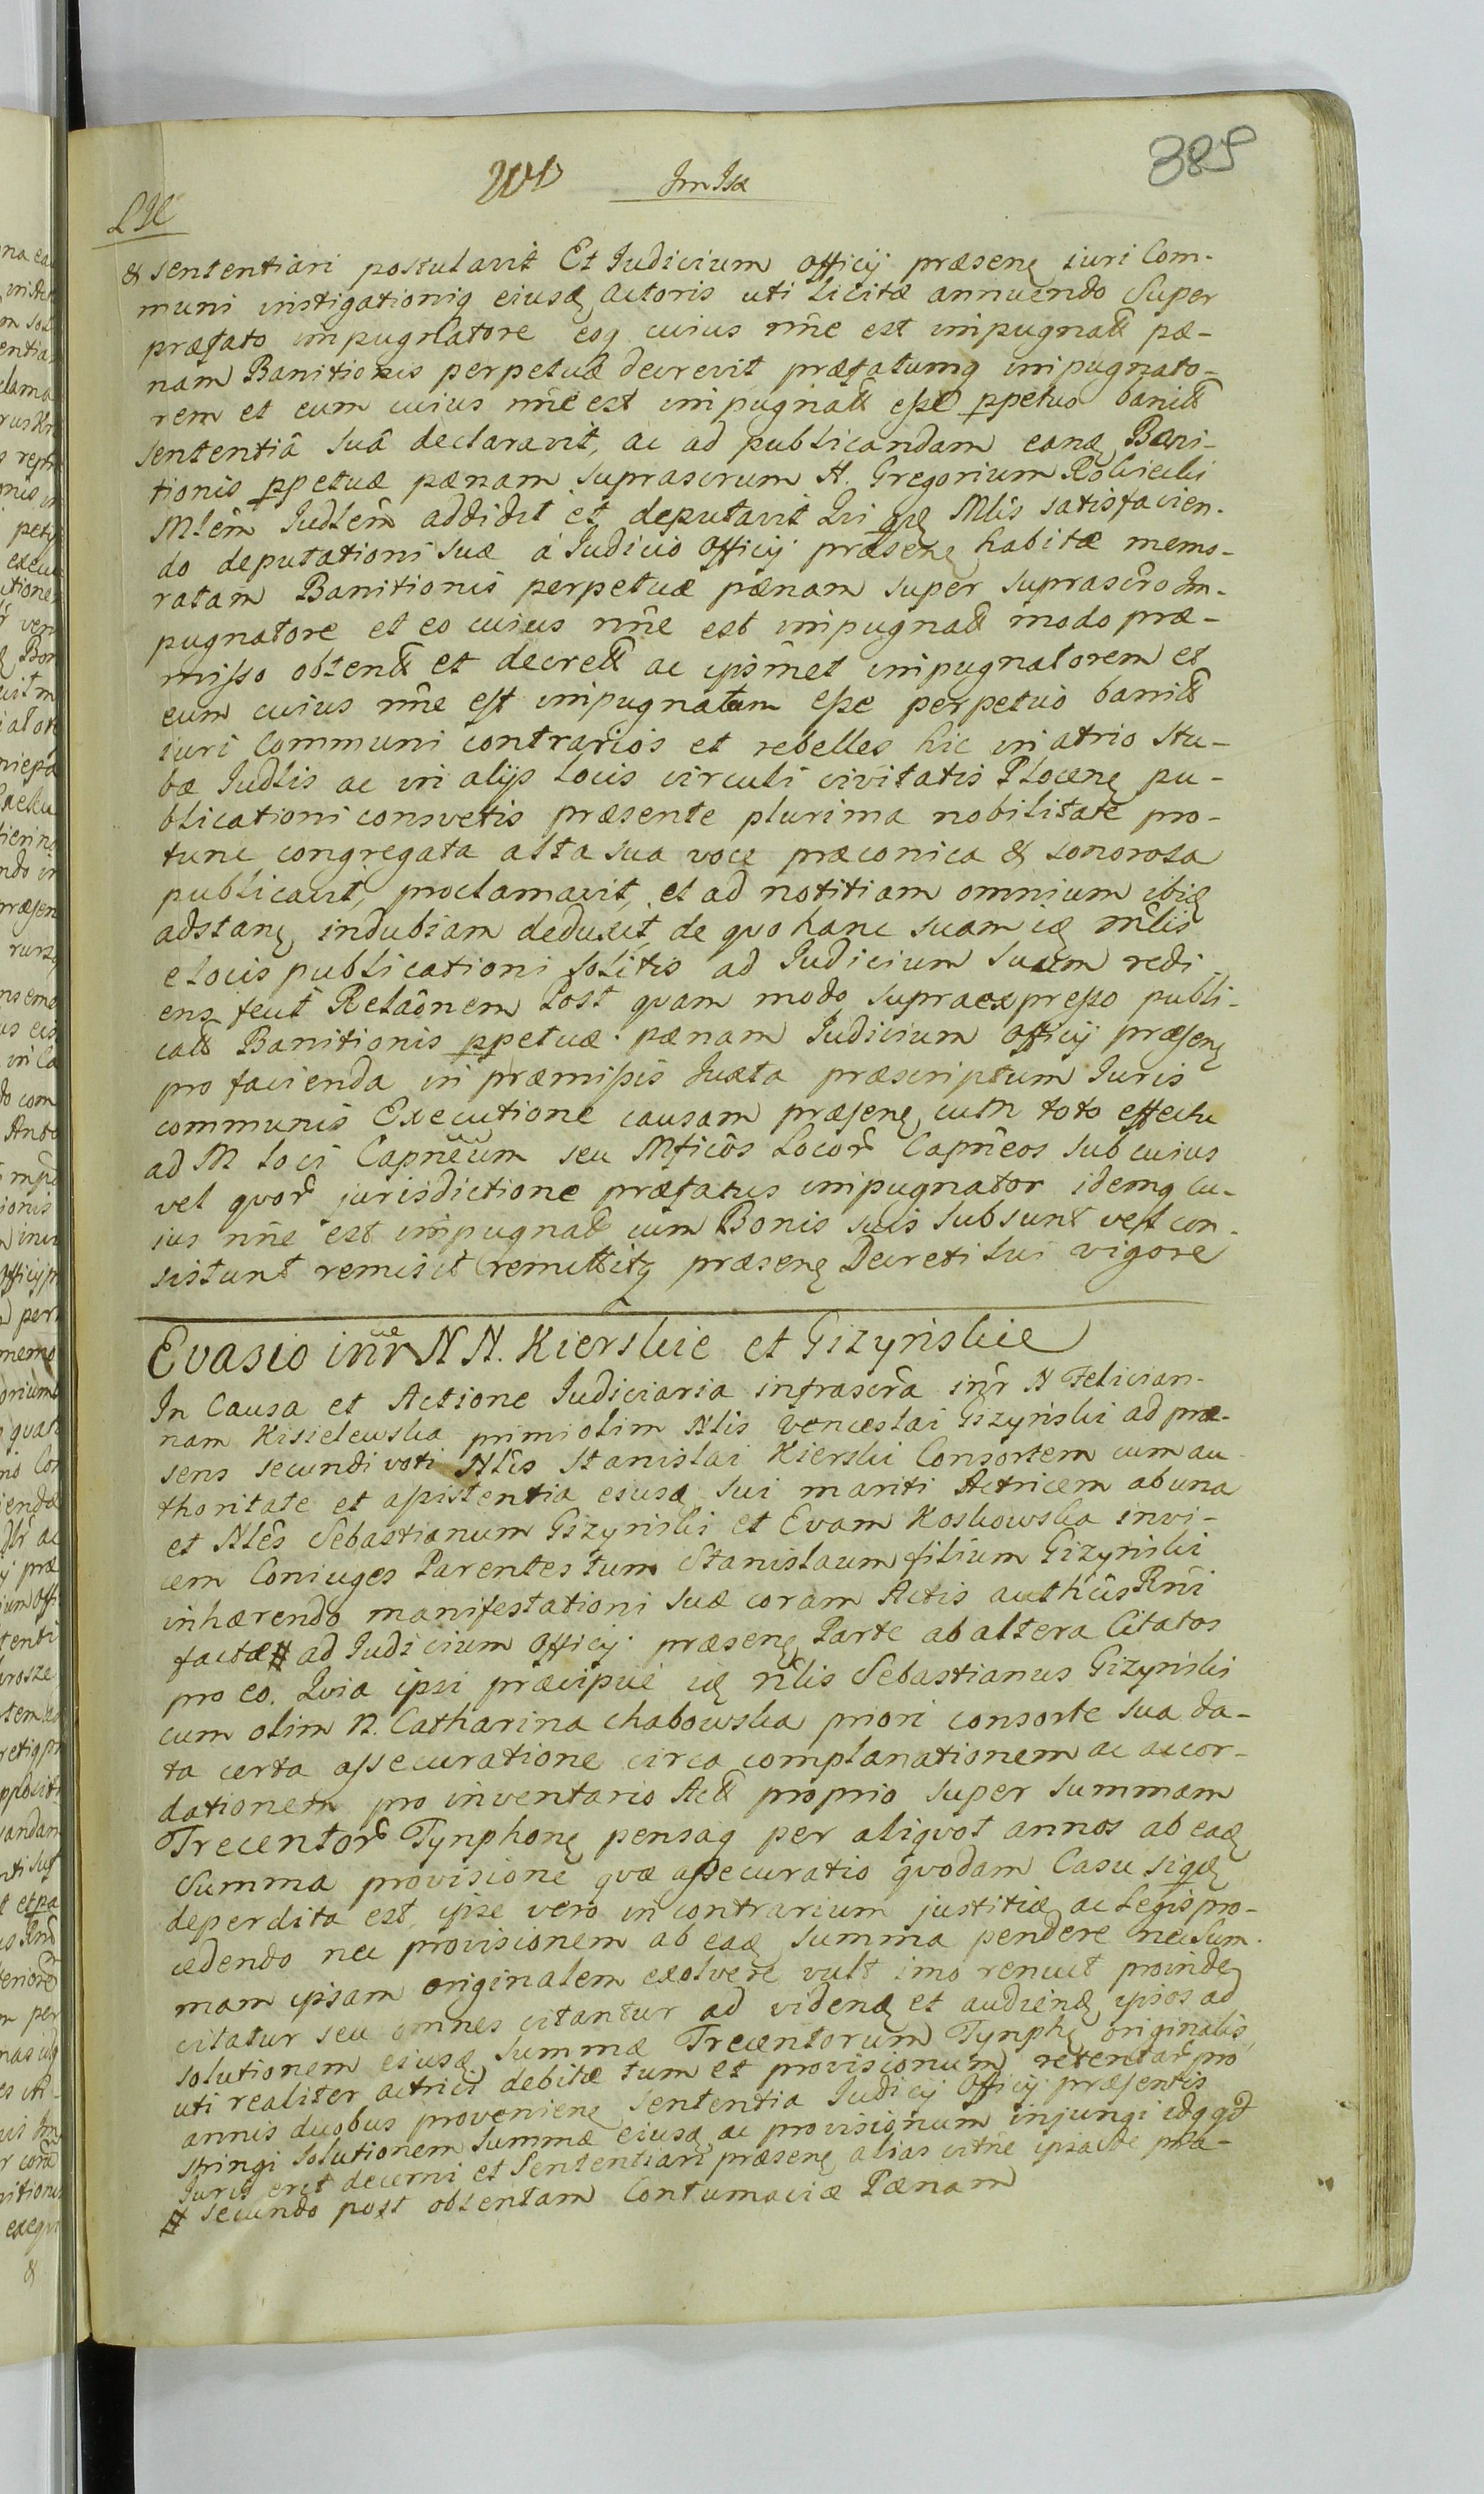 389
JmJsæ
& sententiari postulavit Et Iudicium officij præsenę iuri Com-
muni instigationiq eiusdę Actoris uti licitæ annuendo Super
præfato impugnatore eoq cuius nn̄e est impugnatt pæ-
nam Banitionis perpetuæ decrevit præfatumq impugnato-
rem et eum cuius nn̄e est impugnatt esse ppetuo banitt
sententiâ suâ declaravit, ac ad publicandam eandę Bani-
tionis ppetuæ pænam suprascrum N. Gregorium Rościecki
Mlēm Iudlēm addidit et deputavit Qui qdę Mlis satisfacien-
do deputationi suæ á Iudicio officij præsenę habitæ memo-
ratam Banitionis perpetuæ pænam super suprascr̄o Im-
pugnatore et eo cuius nn̄e est impugnatt modo præ-
misso obtentt et decrett ac ipsm̄et impugnatorem et
eum cuius nn̄e est impugnatum esse perpetuo banitt
iuri Communi contrarios et rebelles hic in atrio Stu-
bæ Iudlis ac in alijs Locis circuli civitatis Plocenę pu-
blicationi consvetis præsente plurima nobilitate pro-
tunc congregata alta sua voce præconica & sonorosa
publicavit, proclamavit, et ad notitiam omnium ibidę
adstanę indubiam deduxit, de quo hanc suam idę mlis
e Locis publicationi solitis ad Iudicium suum redi
ens fecit Relāonem Post quam modo supraexpresso publi-
catt Banitionis ppetuæ pænam Iudicium officij præsenę
pro facienda in præmissis Iuxta præscriptum Iuris
communis Executione causam præsenę cum toto effectu
ad M Loci Capnēum seu Mficōs Locor̄ Capnēos sub cuius
vel quor̄ jurisdictione præfatus impugnator idemq cu-
ius nn̄e est impugnatt cum Bonis suis subsunt vel con-
sistunt remisit remittitq præsenę Decreti sui vigore
Evasio inr̄ NN. Kierskie et Giżyńskie
In Causa et Actione Iudiciaria infrascr̄a inr̄ N Felician-
nam Kisielewska primi olim Nlis Venceslai Giżyński ad præ-
sens secundi voti Nlis Stanislai Kierski Consortem cum au-
thoritate et assistentia eiusdę sui mariti Actricem ab una
et Nlēs Sebastianum Giżyński et Evam Koskowska invi-
cem Coniuges Parentes tum Stanislaum filium Giżyński
inhærendo manifestationi suæ coram Actis auth̄cis Rn̄i
factæ # ad Iudicium officij præsenę Parte ab altera Citatos
pro eo. Quia ipsi præcipue idę nlis Sebastianus Giżyński
cum olim N. Catharina Chabowska priori consorte sua da-
ta certa assecuratione circa complanationem ac accor-
dationem pro inventario Actt proprio super summam
Trecentor̄ Tynphonę pensaq per aliquot annos ab eadę
Summa provisione quæ assecuratio quodam Casu siqdę
deperdita est, ipse vero in contrarium justitiæ ac Legis pro-
cedendo nec provisionem ab eadę summa pendere nec Sum-
mam ipsam originalem exolvere vult imo renuit proinde
citatur seu omnes citantur ad videndę et audiendę ipsos ad
solutionem eiusdę summæ Trecentorum Tynphę originalis
uti realiter actrici debitæ tum et provisionum retentar̄ pro
annis duobus provenienę sententia Iudicij officij præsentis
stringi solutionem summæ eiusdę ac provisionum injungi idq qd
Iuris erit decerni et Sententiari præsenę alias citn̄e ipsade præ-
# secundo post obtentam Contumaciæ Pænam